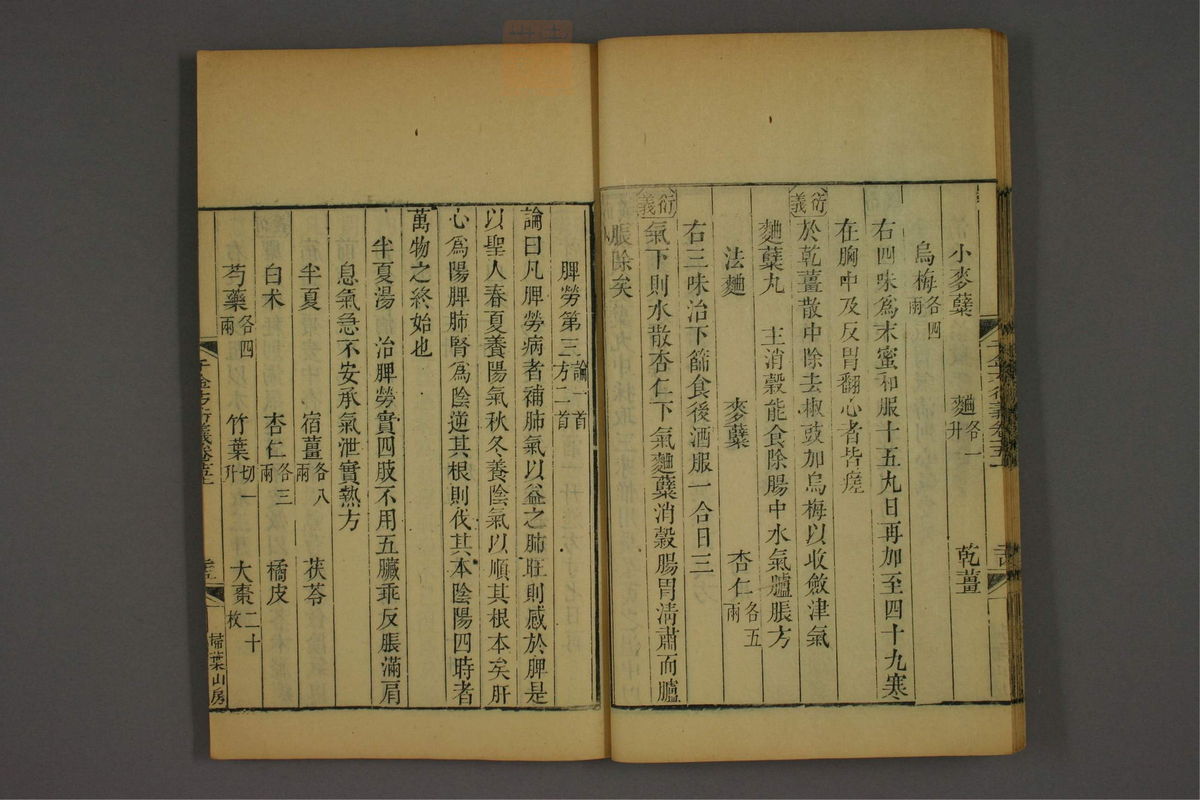 小麥蘗 麯各一升 乾薑
烏梅各四兩
右四味爲末蜜和服十五丸日再加至四十九寒
在胸中及反胃翻心者皆瘥
衍義 於乾薑散中除去椒豉加烏梅以收斂津氣
麯蘗丸 主消穀能食除腸中水氣臚脹方
法麯 麥蘗 杏仁各五兩
右三味治下篩食後酒服一合日三
衍義 氣下則水散杏仁下氣麯蘗消穀腸胃淸肅而臚
脹除矣
脾勞第三論一首方二首
論曰凡脾勞病者補肺氣以益之肺旺則感於脾是
以聖人春夏養陽氣秋冬養陰氣以順其根本矣肝
心爲陽脾肺腎爲陰逆其根則伐其本陰陽四時者
萬物之終始也
半夏湯 治脾勞實四肢不用五臟乖反脹滿肩
息氣急不安承氣泄實熱方
半夏 宿薑各八兩 茯苓
白朮 杏仁各三兩 橘皮
芍藥各四兩 竹葉切一升 大棗二十枚
掃葉山房